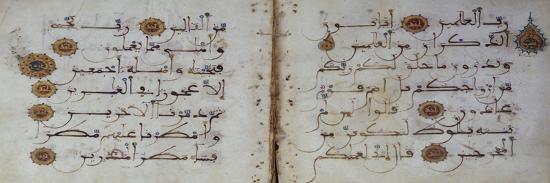 رب العلمين أتاتون
الذكران من العلمين
وتذرون ما خلق لكم ربكم
من أزوجكم بل أنتم قوم
عادون قالوا لئن لم
تنته يلوط لتكونن من
المخرجين قال إني لعملكم
من القالين رب نجني
وأهلي مما يعملون
فنجينه وأهله أجمعين
إلا عجوزا في الغبرين
ثم دمرنا الاخرين
وأمطرنا عليهم مطرا
فساء مطر المنذرين